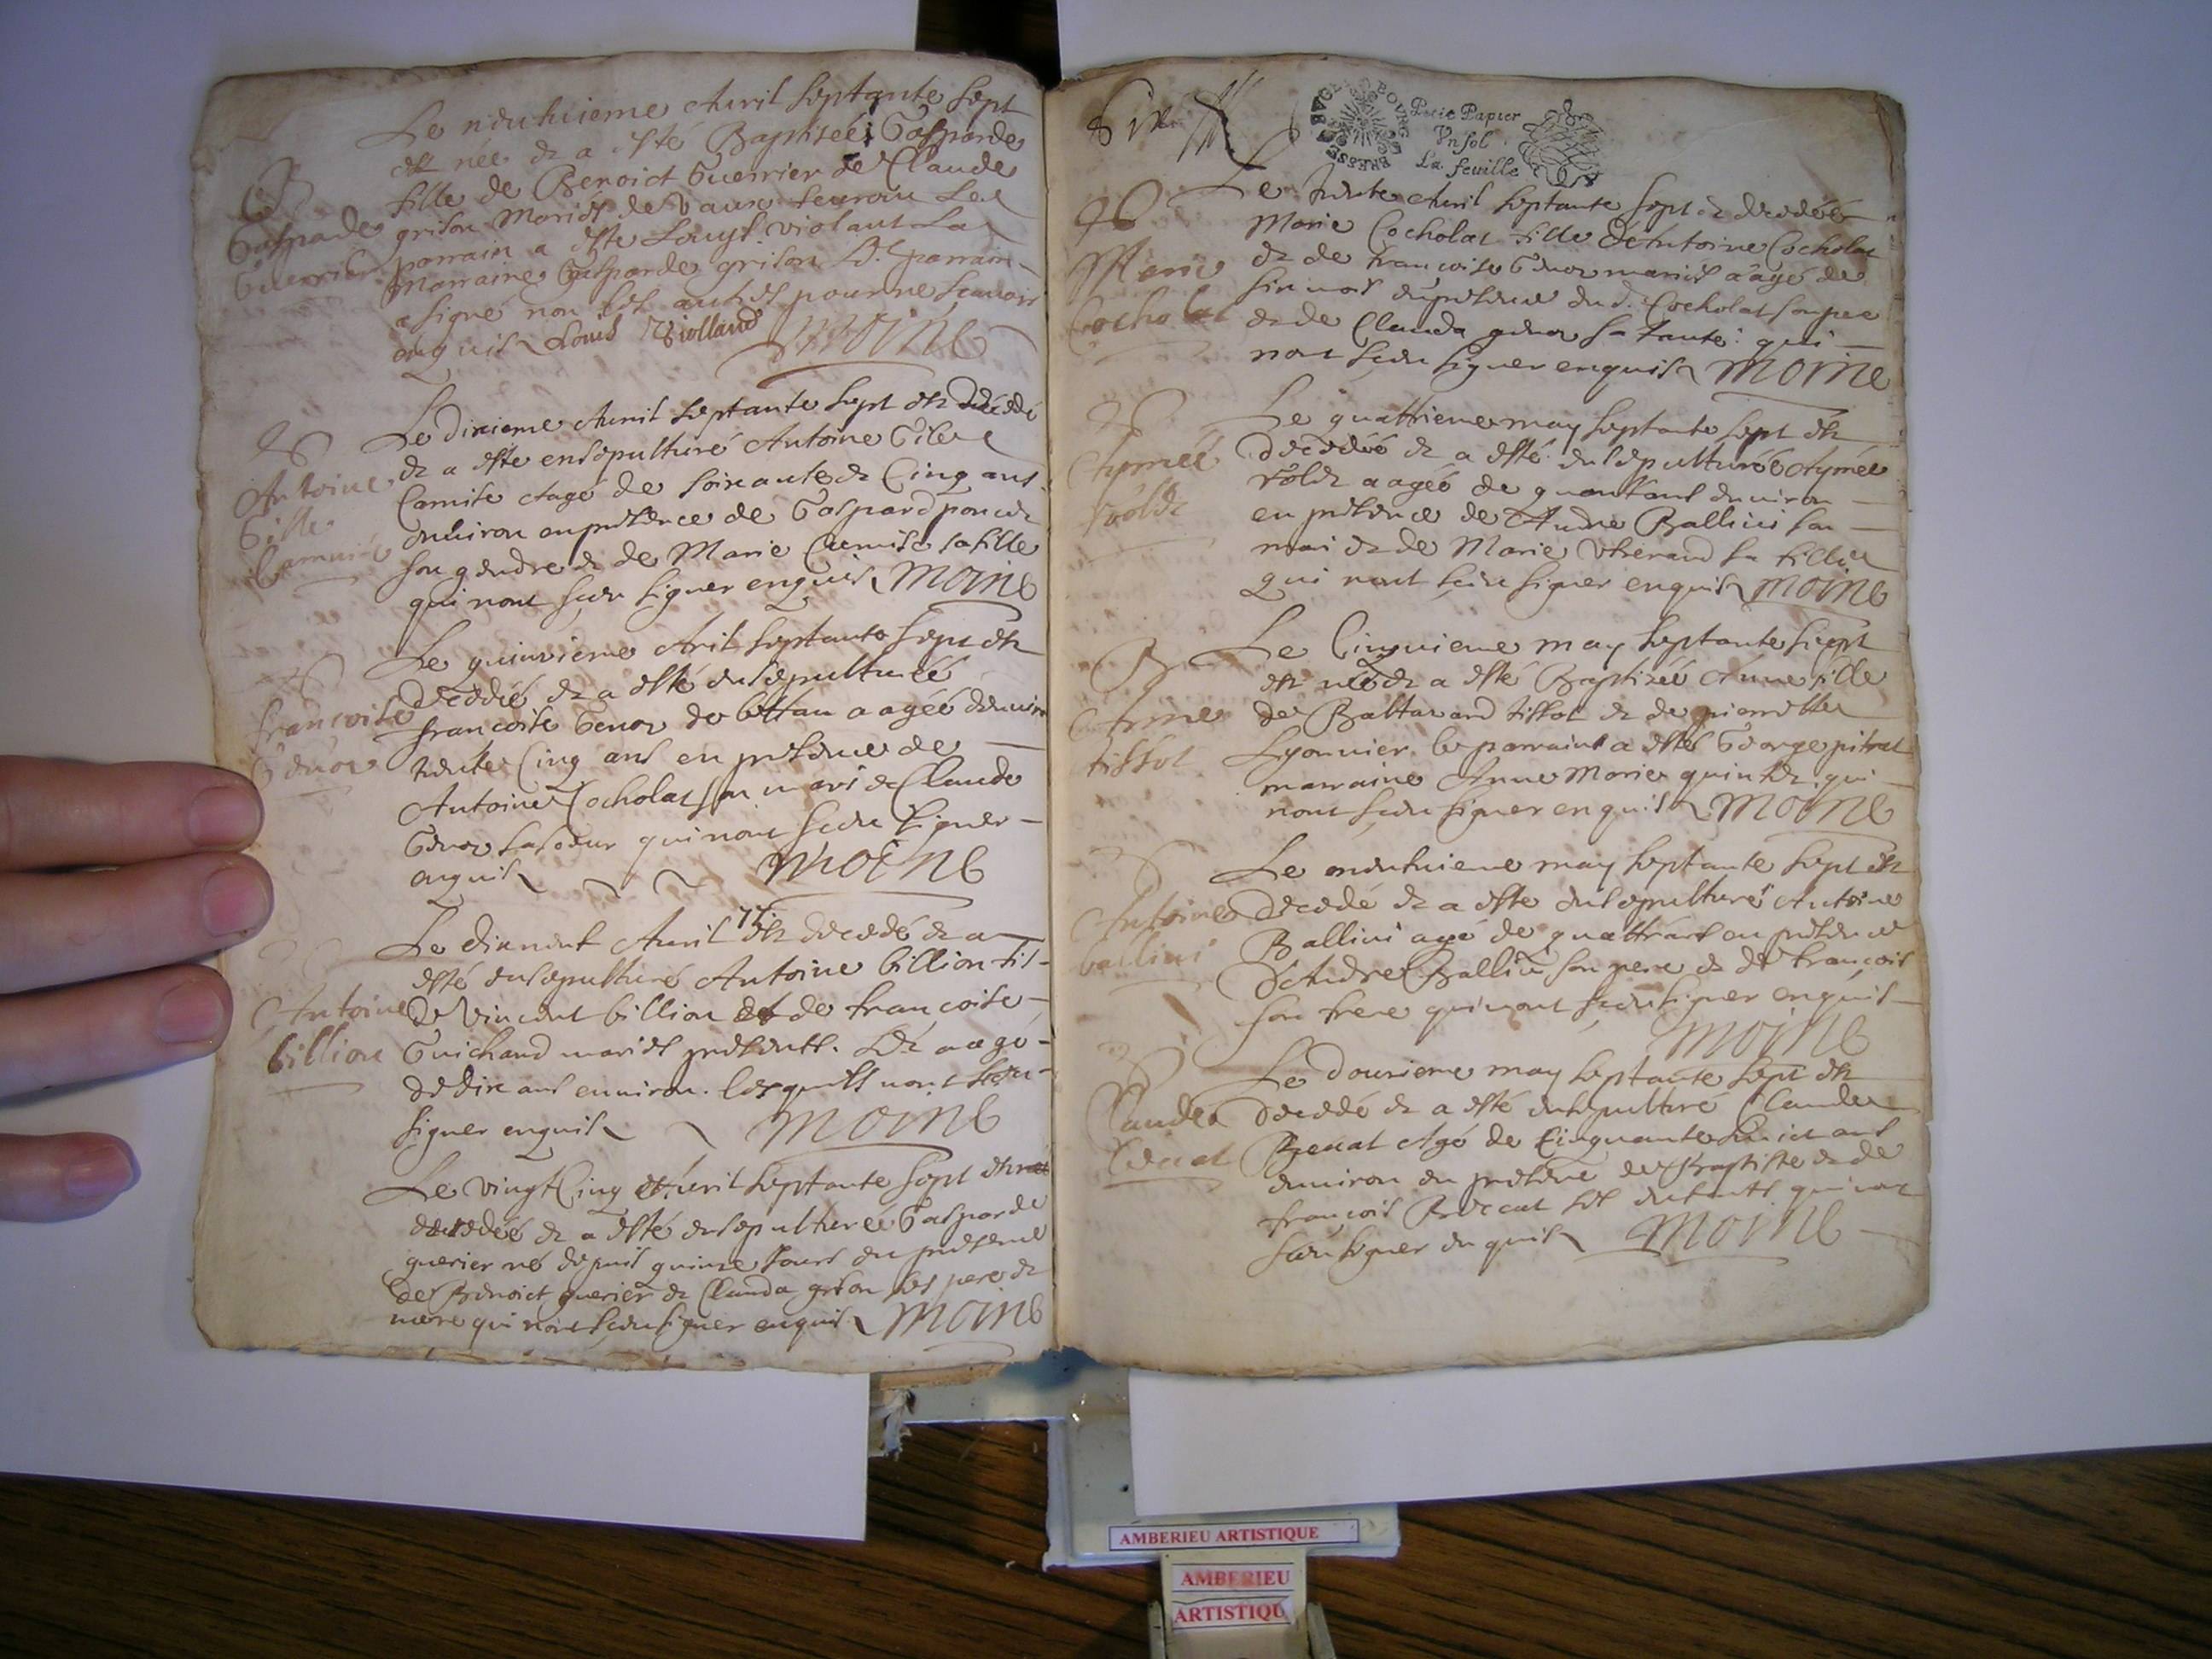 Le neufuieme Auril septante sept
est née et a esté Baptisée Gasparde
fille de Benoict Guerrier et Claude
grison mariés de Vaux feurou Le
parrain a este Louys violant La
Marraine Gasparde grison Le parrain
a signé non les autres pour ne scauoir
enquis Louis Violland Moine
B
Gasparde
Guerrier
Le dixieme Auril septante sept est decedé
et a este ensepulturé Antoine Gile
Camise Aagé de soixante et Cinq ans
enuiron en presence de Gaspard poncet
son gendre et de Marie Camise sa fille
qui nont sceu signer enquis Moine
Antoine
Gille
Le quinzieme Aril septante sept est
decedée et a esté ensepulturée
francoise Genor de aagée denuiron
trente Cinq ans en presence de
Antoine Cocholat son mari et Claude
Genor sa soeur qui nont sceu signer
enquis Moine
francoise
Genor
Le dixneuf Auril 77 est decedé et a
esté ensepulturé Antoine billion fis
de Vincent billion et de francoise
Guichard mariés presents. Et aagé
de dix ans enuiron. lesquells nont sceu
signer enquis Moine
Antoine
billion
Le vingt Cinq Auril septante sept est
decedée et a esté ensepulturée Gasparde
guerier né depuis quinze Jours en presence
de Benoict guerier et Clauda grison ses pere et
mere qui nont sceu signer enquis Moine
Six
BOURG BRESSE BVGEY
Petit Papier
Vn sol
La feuille
Le trente Auril septante sept et decedée
Marie Cocholat fille de Antoine Cocholat
et de francoise Genor mariés aagé de
six mois en presence du d. Cocholat son pere
et de Clauda genor sa tante: qui
nont sceu signer enquis Moine
Marie
Cocholat
Le quattrieme may septante sept est
decedée et a esté ensepulturée Aymée
aagée de quarante ans enuiron
en presence de Andre Ballini son
mari et de Marie sa fillie
qui nont sceu signer enquis Moine
Aymée
Le Cinquieme may septante sept
est née et a esté Baptizée Anne fille
de Baltazard tissot et de pierrette
Lyonnier. le parrain a estes George pitrat
marraine Anne Marie quintet. qui
nont sceu signer enquis Moine
B
Anne
tissot
Le neufuieme may septante sept est
decedé et a este ensepulturé Antoine
Ballini agé de quattre ans en presence
d'Andre Ballini son pere et de francois
son frere qui nont sceu signer enquis
Moine
Antoine
ballini
Le douzieme may septante sept est
decedé et a esté ensepulturé Claude
Agé de Cinquante huict ans
enuiron en presence de Baptiste et de
francois ses enfants qui nont
sceu signer enquis Moine
Claude
AMBERIEU ARTISTIQUE
AMBERIEU
ARTISTIQU